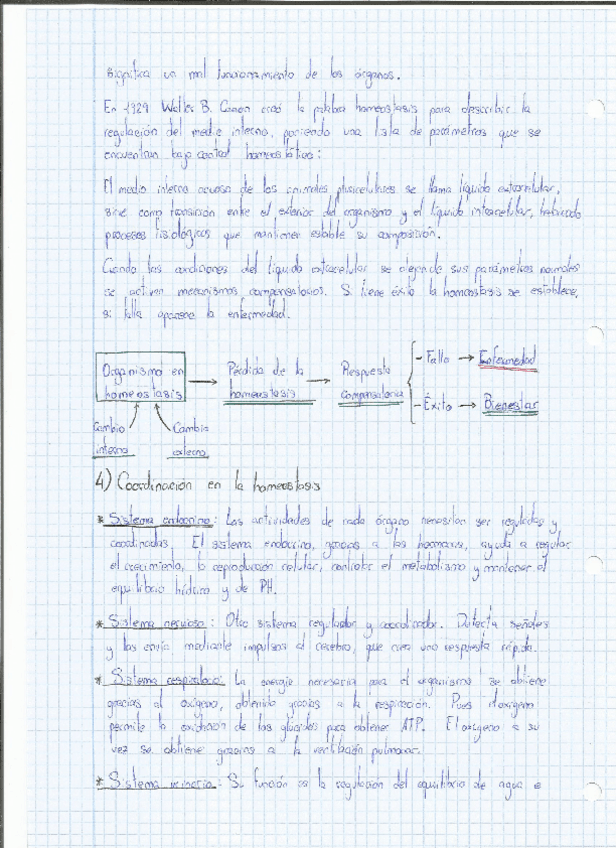 significa un mal funcionamiento de los órganos.
En 1929 Walter B. Canon creó la palabra homeostasis para describir la
regulación del medio interno, poniendo una lista de parámetros que se
encuentran bajo control homeostático:
El medio interno acuoso de los animales pluricelulares se llama líquido extracelular,
sirve como transición entre el exterior del organismo y el líquido intracelular, habiendo
procesos fisiológicos que mantienen estable su composición.
Cuando las condiciones del líquido extracelular se alejan de sus parámetros normales
se activan mecanismos compensatorios. Si tiene éxito la homeostasis se establece,
si falla aparece la enfermedad.
Organismo en homeostasis → Pérdida de la homeostasis → Respuesta compensatoria
- Falla → Enfermedad
- Éxito → Bienestar
Cambio interno
Cambio externo
4) Coordinación en la homeostasis
* Sistema endocrino: Las actividades de cada órgano necesitan ser reguladas y
coordinadas. El sistema endocrino, gracias a las hormonas, ayuda a regular
el crecimiento, la reproducción celular, controlar el metabolismo y mantener el
equilibrio hídrico y de PH.
* Sistema nervioso: Otro sistema regulador y coordinador. Detecta señales
y las envía mediante impulsos al cerebro, que crea una respuesta rápida.
* Sistema respiratorio: La energía necesaria para el organismo se obtiene
gracias al oxígeno, obtenido gracias a la respiración. Pues el oxígeno
permite la oxidación de los glúcidos para obtener ATP. El oxígeno a su
vez se obtiene gracias a la ventilación pulmonar.
* Sistema urinario: Su función es la regulación del equilibrio de agua e